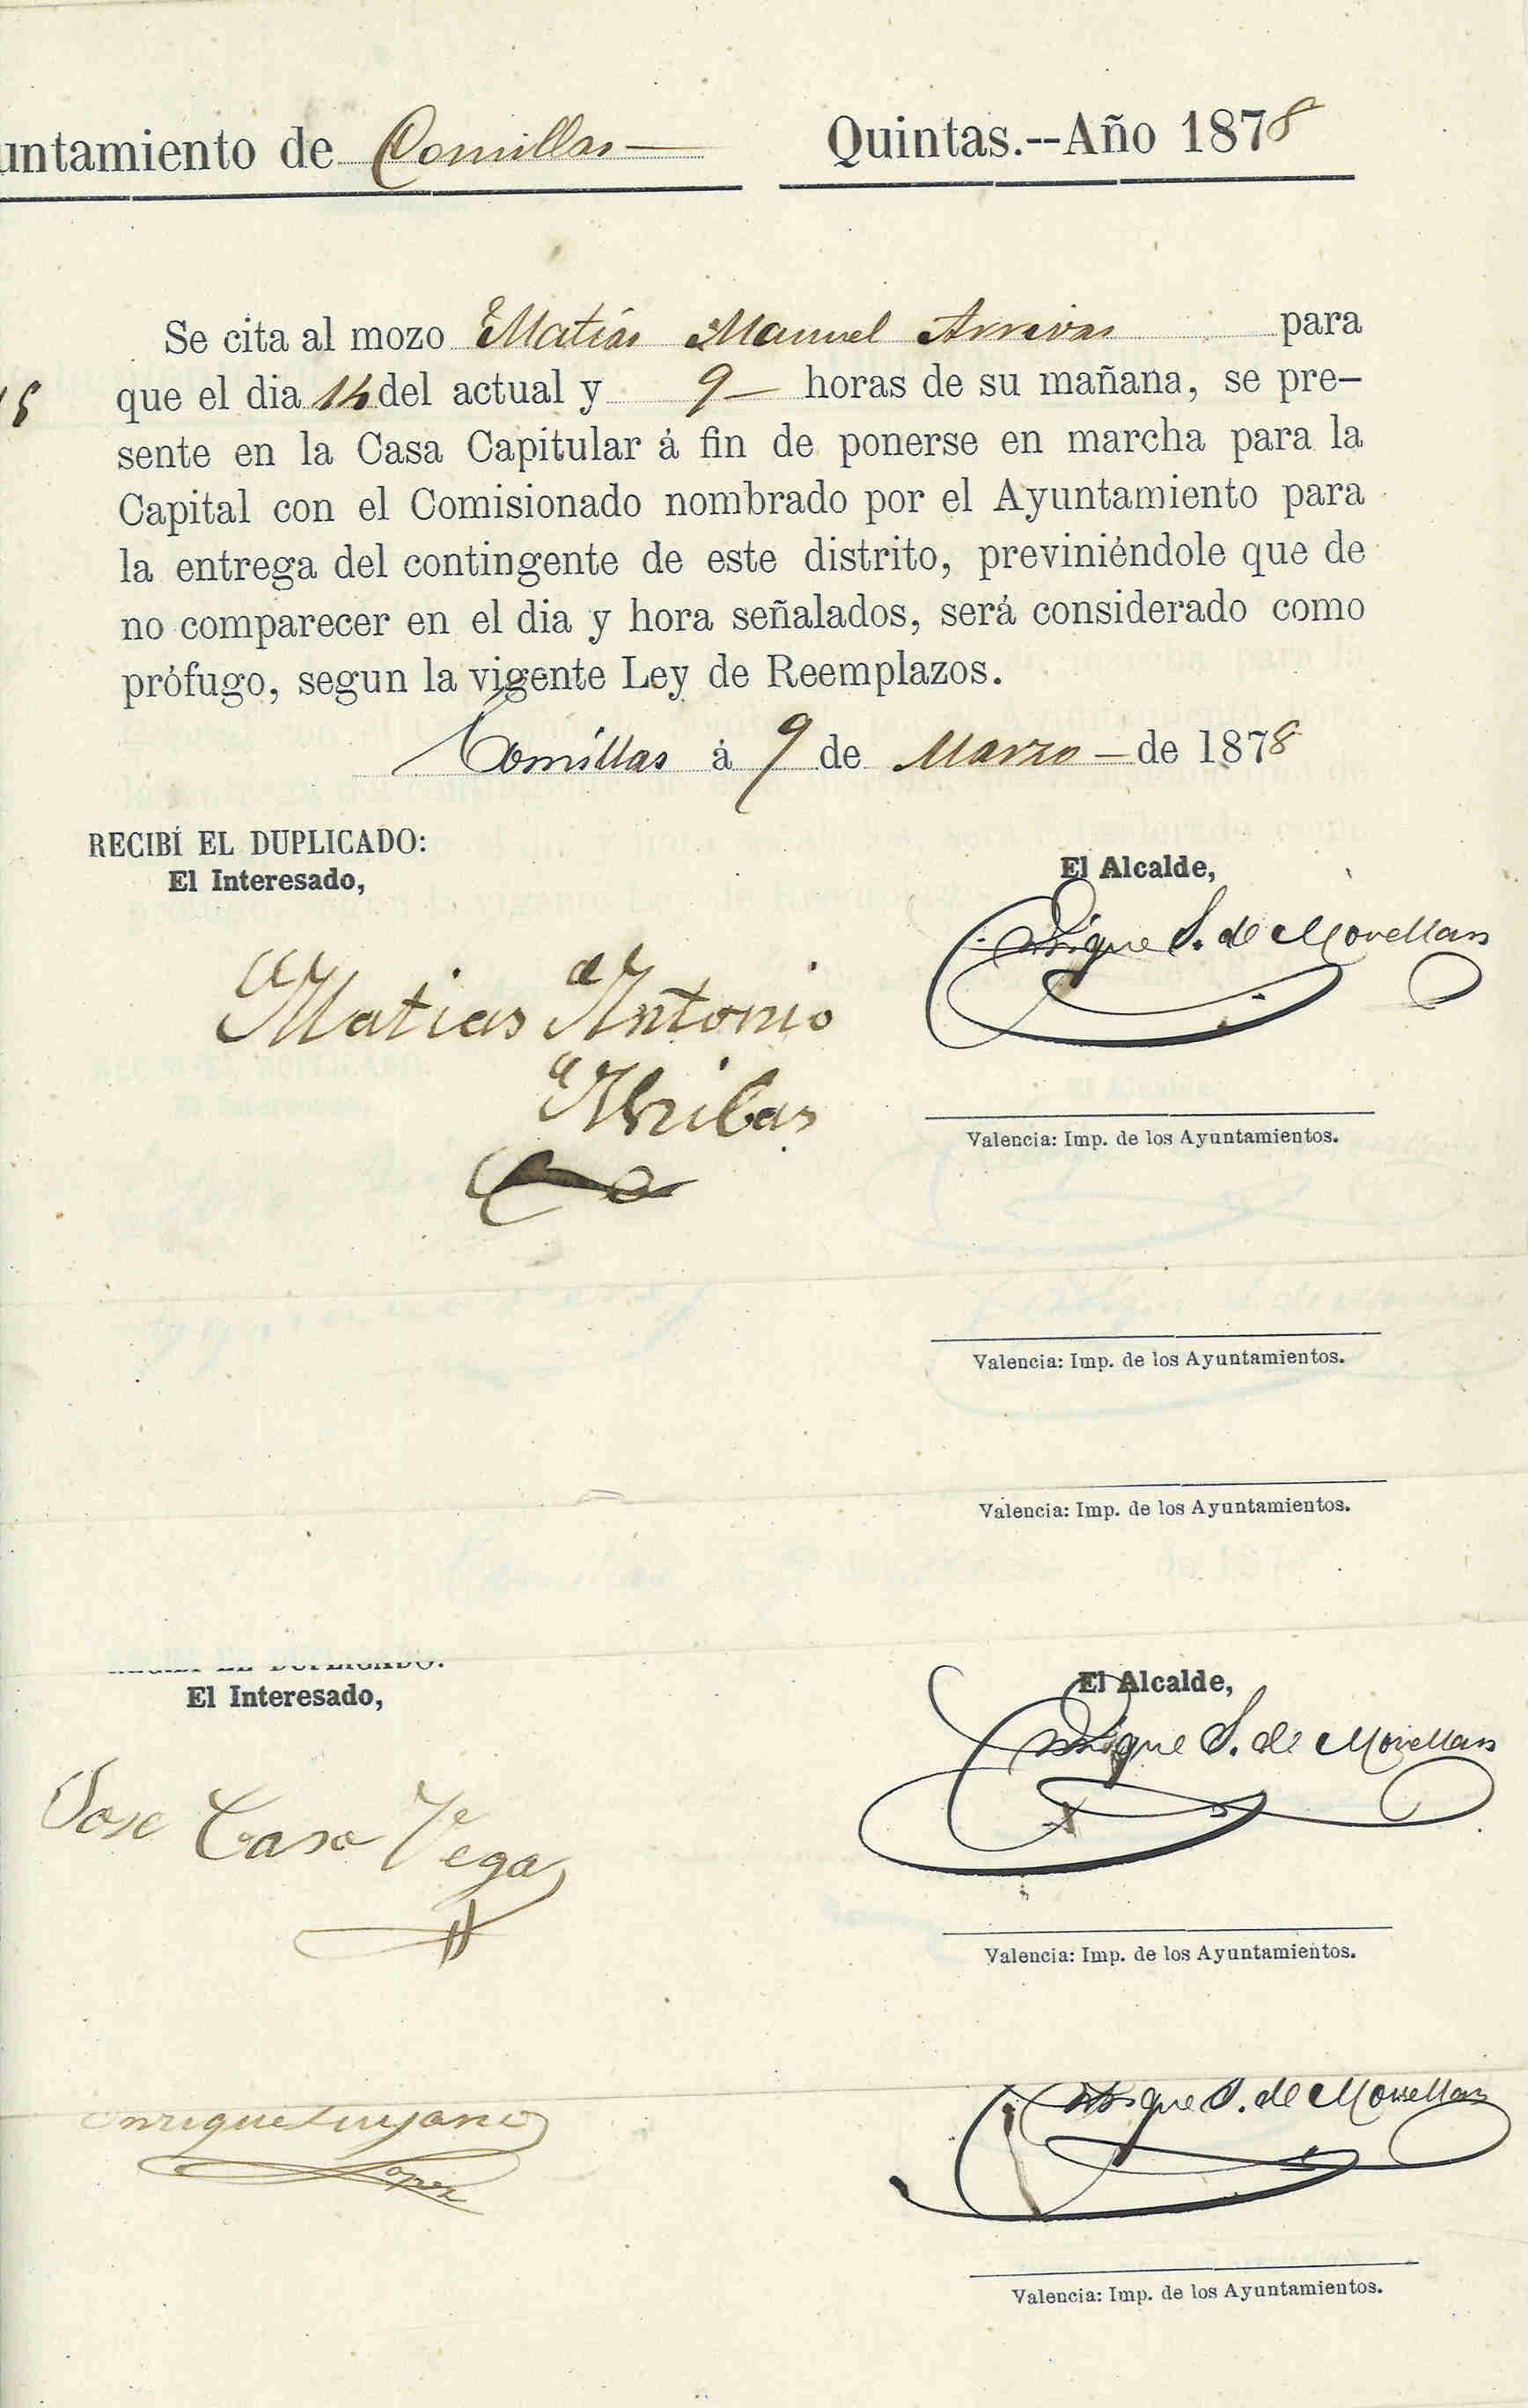 untamiento de Comillas
Quintas.--Año 1878
Se cita al mozo Matías Manuel Arrivas para
que el dia 14 del actual y 9 horas de su mañana, se pre-
sente en la Casa Capitular á fin de ponerse en marcha para la
Capital con el Comisionado nombrado por el Ayuntamiento para
la entrega del contingente de este distrito, previniéndole que de
no comparecer en el dia y hora señalados, será considerado como
prófugo, segun la vigente Ley de Reemplazos.
Comillas á 9 de Marzo de 1878
RECIBÍ EL DUPLICADO:
El Interesado,
El Alcalde,
Enrique S. de Movellan
Matias Antonio
Abribas
Valencia: Imp. de los Ayuntamientos.
Valencia: Imp. de los Ayuntamientos.
Valencia: Imp. de los Ayuntamientos.
El Interesado,
El Alcalde,
Enrique S. de Movellan
Jose Caso Vega
Valencia: Imp. de los Ayuntamientos.
Enrique S. de Movellan
Enrique Luyano
Lopez
Valencia: Imp. de los Ayuntamientos.